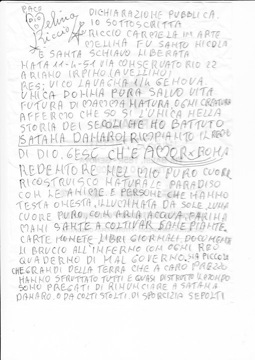 PACE
Melina
Riccio
DICHIARAZIONE PUBBLICA.
IO SOTTOSCRITTA
RICCIO CARMELA IN ARTE
MELINA FU SANTO NICOLA
E SANTA SCHIAVO LIBERATA
NATA 11-4-51 VIA CONSERVATORIO 22
ARIANO IRPINO (AVELLINO)
RES: VICO LAVAGNA 1/4 GENOVA.
UNICA DONNA PURA SALVO VITA
FUTURA DI MAMMA NATURA OGNI CREATURA
AFFERMO CHE SO SI L'UNICA NELLA
STORIA DEI SECOLI CHE HO BATTUTO
SATANA DANARO! RIMPIANTO IL REDE
DI DIO. GESÙ CH'È AMOR x ROMA
REDENTORE NEL MIO PURO CUORE
RICOSTRUISCO NATURALE PARADISO
CON LE MANI E PERSONE CHE HANNO
TESTA ONESTA. ILLUMINATA DA SOLE LUNA
CUORE PURO, CON ARIA ACQUA FARINA
MANI SANTE A COLTIVAR PANE PIANTE.
CARTE MONETE LIBRI GIORNALI DOCUMENTI
LI BRUCIO ALL'INFERNO CON OGNI REO
QUADERNO DI MAL GOVERNO. SIA PICCOLI
CHE GRANDI DELLA TERRA CHE A CARO PREZZO
HANNO SFRUTTATO TUTTI E QUASI DISTRUTTO IL MONDO
SONO PREGATI DI RINUNCIARE A SATANA
DANARO. O DA COLTI STOLTI. DI SPORCIZIA SEPOLTI